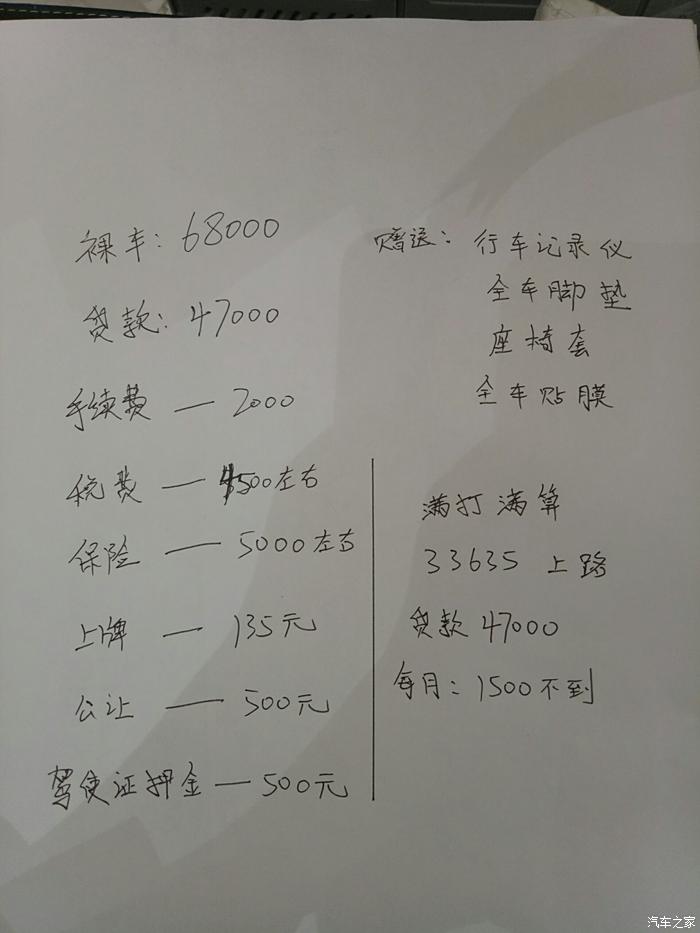 裸车：68000
贷款：47000
手续费 — 2000
税费 — 4500左右
保险 — 5000左右
上牌 — 135元
公让 — 500元
驾使证押金 — 500元
赠送：行车记录仪
全车脚垫
座椅套
全车贴膜
满打满算
33635 上路
贷款 47000
每月：1500不到
汽车之家